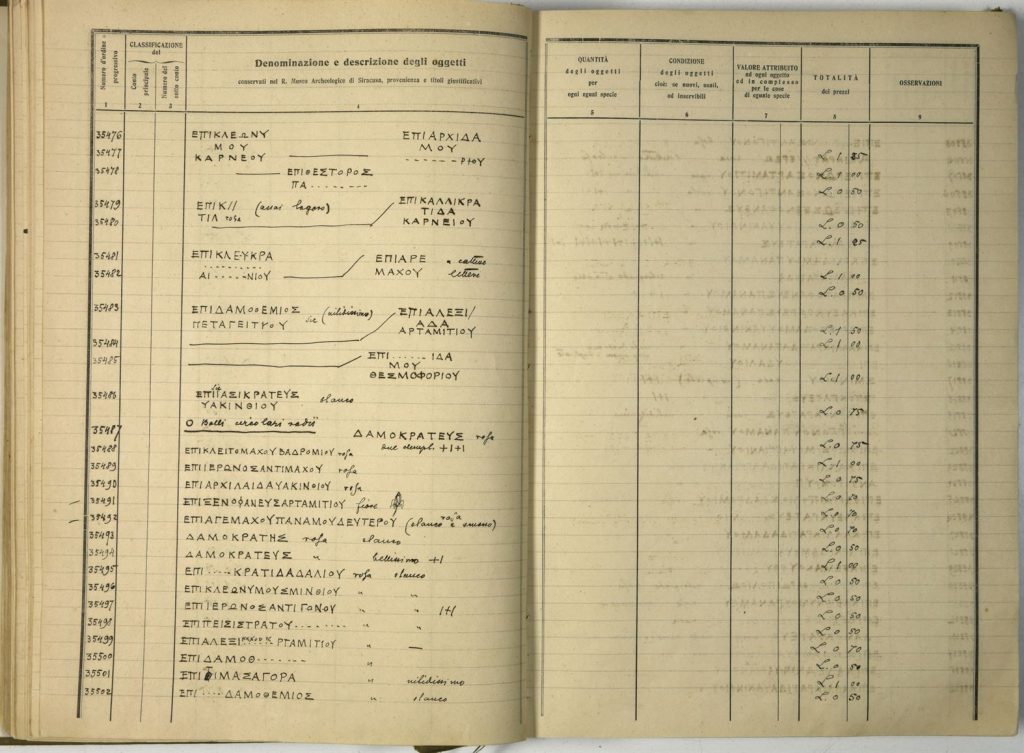 Numero d'ordine progressivo
CLASSIFICAZIONE del
Conto principale
Numero del sotto conto
Denominazione e descrizione degli oggetti
conservati nel R. Museo Archeologico di Siracusa, provenienza e titoli giustificativi
1 2 3 4
35476 ΕΠΙΚΛΕΩΝΥ ΕΠΙΑΡΧΙΔΑ
ΜΟΥ ΜΟΥ
35477 ΚΑΡΝΕΟΥ ------ΡΙΟΥ
35478 ΕΠΙΘΕΣΤΟΡΟΣ
ΠΑ........
35479 ΕΠΙΚ// (assai logoro) ΕΠΙΚΑΛΛΙΚΡΑ
ΤΙΛ rosa ΤΙΔΑ
35480 ΚΑΡΝΕΙΟΥ
35481 ΕΠΙΚΛΕΥΚΡΑ ΕΠΙΑΡΕ
35482 ΑΙ.....ΝΙΟΥ ΜΑΧΟΥ lettere
35483 ΕΠΙΔΑΜΟΘΕΜΙΟΣ (nitidissimo) ΕΠΙΑΛΕΞΙ/
ΠΕΤΑΓΕΙΤΥΟΥ sic ΑΔΑ
35484 ΑΡΤΑΜΙΤΙΟΥ
35485 ΕΠΙ......ΙΔΑ
ΜΟΥ
ΘΕΣΜΟΦΟΡΙΟΥ
35486 sic
ΕΠΙΤΑΣΙΚΡΑΤΕΥΣ
ΥΑΚΙΝΘΙΟΥ bianco
Ο Bolli circolari rodii
35487 ΔΑΜΟΚΡΑΤΕΥΣ rosa
due esempl. +1+1
35488 ΕΠΙΚΛΕΙΤΟΜΑΧΟΥΒΑΔΡΟΜΙΟΥ rosa
35489 ΕΠΙΙΕΡΩΝΟΣΑΝΤΙΜΑΧΟΥ rosa
35490 ΕΠΙΑΡΧΙΛΑΙΔΑΥΑΚΙΝΘΙΟΥ rosa
35491 ΕΠΙΞΕΝΟΦΑΝΕΥΣΑΡΤΑΜΙΤΙΟΥ fiore
35492 ΕΠΙΑΓΕΜΑΧΟΥΠΑΝΑΜΟΥΔΕΥΤΕΡΟΥ (bianco rosa e smosso)
35493 ΔΑΜΟΚΡΑΤΗΣ rosa bianco
35494 ΔΑΜΟΚΡΑΤΕΥΣ " bellissimo +1
35495 ΕΠΙ....ΚΡΑΤΙΔΑΔΑΛΙΟΥ rosa bianco
35496 ΕΠΙΚΛΕΩΝΥΜΟΥΣΜΙΝΘΙΟΥ " "
35497 ΕΠΙΙΕΡΩΝΟΣΑΝΤΙΓΟΝΟΥ " " 1+1
35498 ΕΠΙΠΕΙΣΙΣΤΡΑΤΟΥ........ " "
35499 ΕΠΙΑΛΕΞΙ ΡΤΑΜΙΤΙΟΥ " —
35500 ΕΠΙΔΑΜΟΘ....... "
35501 ΕΠΙΤΙΜΑΣΑΓΟΡΑ " nitidissimo
35502 ΕΠΙ....ΔΑΜΟΘΕΜΙΟΣ " bianco
QUANTITÀ degli oggetti per ogni eguali specie
CONDIZIONE degli oggetti cioè: se nuovi, usati, od inservibili
VALORE ATTRIBUITO ad ogni oggetto ed in complesso per le cose di eguale specie
TOTALITÀ dei prezzi
OSSERVAZIONI
5 6 7 8 9
L. 1 25
L. 1 00
L. 0 50
L. 0 50
L. 1 25
L. 1 00
L. 0 50
L. 1 50
L. 1 00
L. 1 00
L. 0 75
L. 0 75
L. 1 00
L. 0 75
L. 0 50
L. 0 70
L. 0 70
L. 0 50
L. 1 00
L. 0 50
L. 0 50
L. 0 50
L. 0 50
L. 0 70
L. 0 50
L. 1 00
L. 0 50